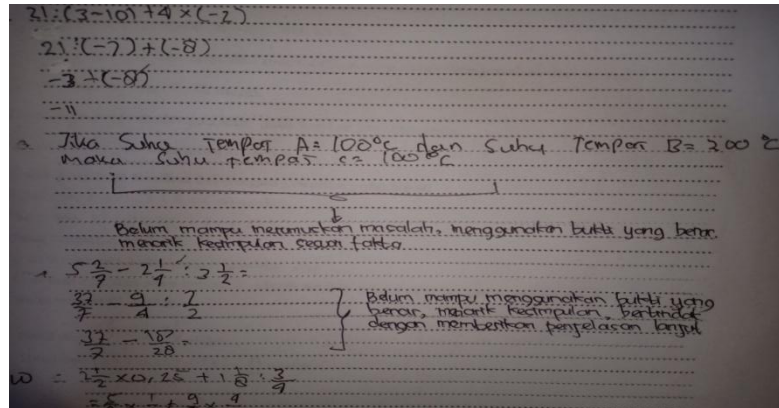 21:(3-10)+4×(-2)
21:(-7)+(-8)
-3+(-8)
-11
Jika Suhu Tempat A= 100°C dan Suhu Tempat B= 200 °C
maka Suhu tempat c= 100°C
Belum mampu merumuskan masalah, menggunakan bukti yang benar,
menarik kesimpulan sesuai fakta.
5 2/7 - 2 1/4 : 3 1/2 =
37/7 - 9/4 : 7/2
37/7 - 18/28 =
Belum mampu menggunakan bukti yang
benar, menarik kesimpulan, bertindak
dengan memberikan penjelasan lanjut
= 2 1/2 ×0,25 + 1 1/8 : 3/4
= 5/2 × 1/4 + 9/8 × 4